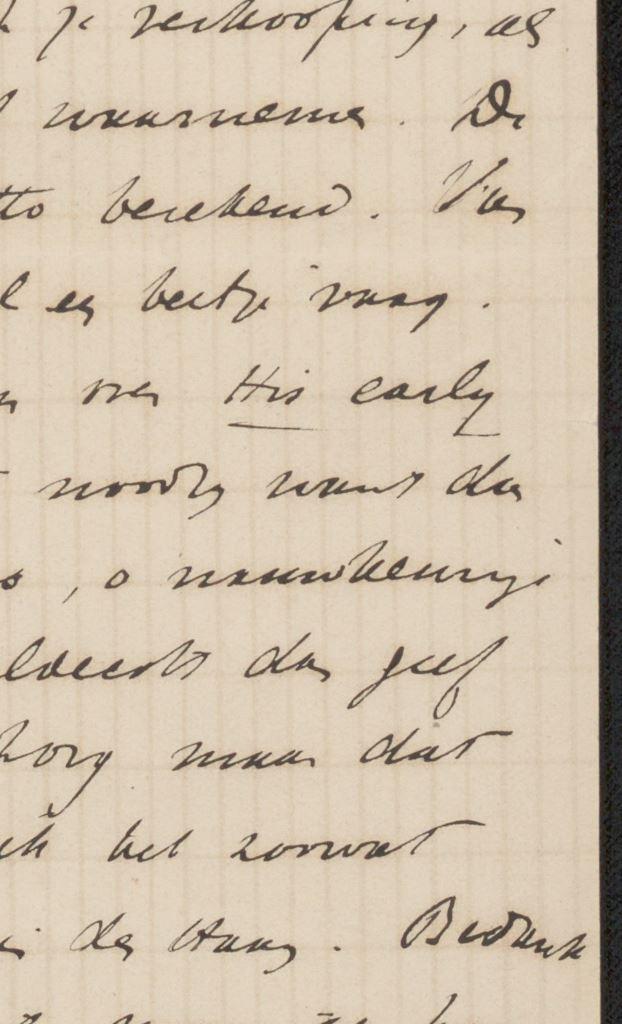 je verkooping, als
waarneme. De
berekend. Van
een beetje vaag.
over His early
noodig want dan
, o nauwkeurige
dan geef
zorg maar dat
ik het zoowat
in den Haag. Bedank